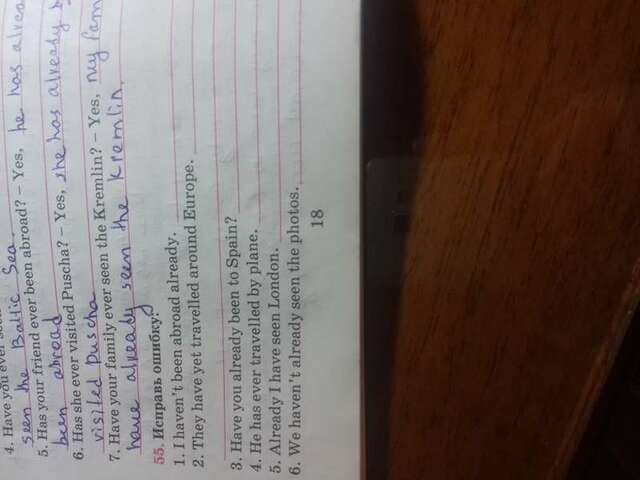 4. Have you ever seen
seen the Baltic Sea.
5. Has your friend ever been abroad? – Yes, he has alrea
been abroad
6. Has she ever visited Puscha? – Yes, she has already
visited Puscha
7. Have your family ever seen the Kremlin? – Yes, my fam
have already seen the Kremlin.
55. Исправь ошибку.
1. I haven't been abroad already.
2. They have yet travelled around Europe.
3. Have you already been to Spain?
4. He has ever travelled by plane.
5. Already I have seen London.
6. We haven't already seen the photos.
18